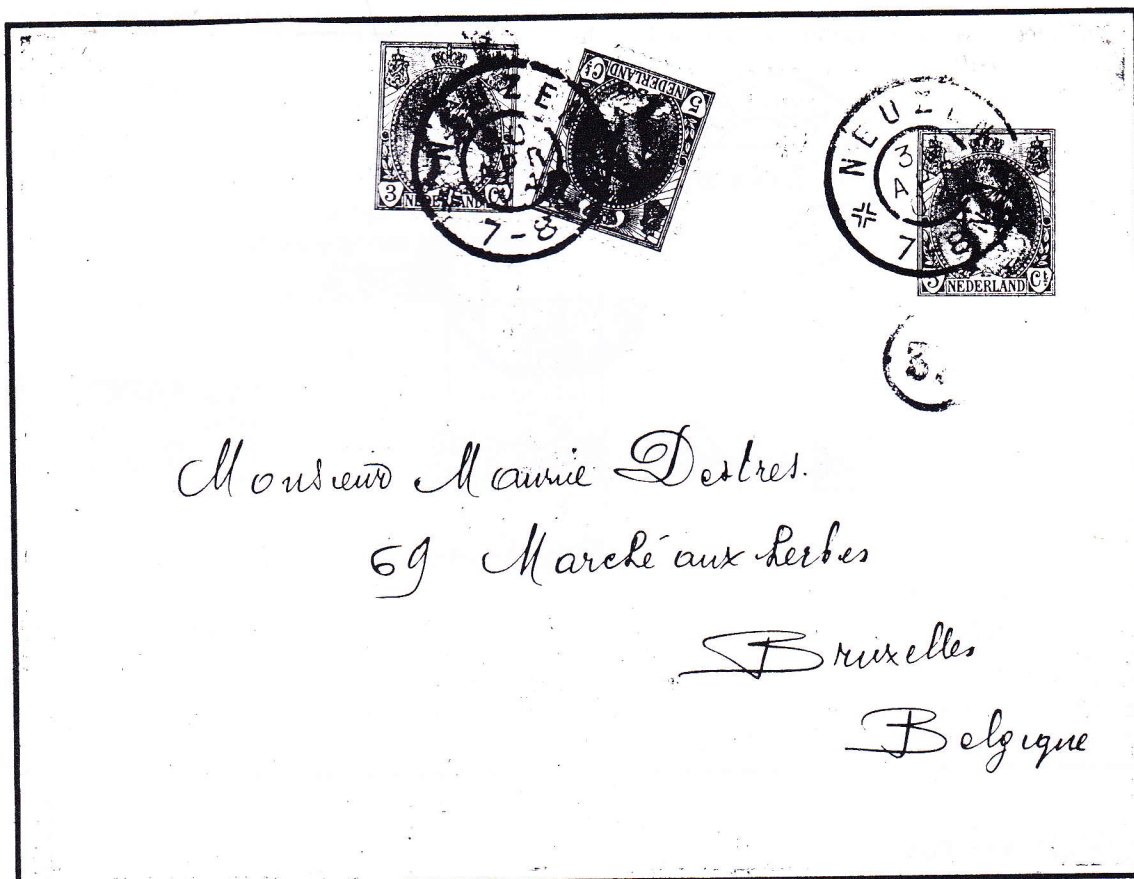 ZE
7-8
3 NEDERLAND Ct
5 NEDERLAND Ct
NEUZEN
3
A
7-8
5 NEDERLAND Ct
3
Monsieur Maurice Destres.
69 Marché aux herbes
Bruxelles
Belgique